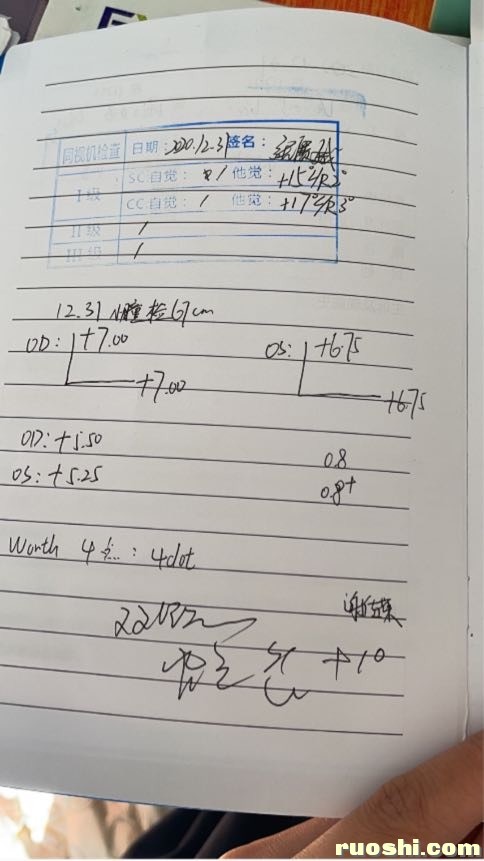 同视机检查 日期：2020.12.31 签名：
I级 SC自觉： / 他觉：+15° L/R2°
CC自觉： / 他觉：+17° L/R3°
II级 /
III级 /
12.31 小瞳检 67cm
OD: +7.00 OS: +6.75
+7.00 +6.75
OD: +5.50 0.8
OS: +5.25 0.8+
Worth 4点: 4dot
+10
ruoshi.com